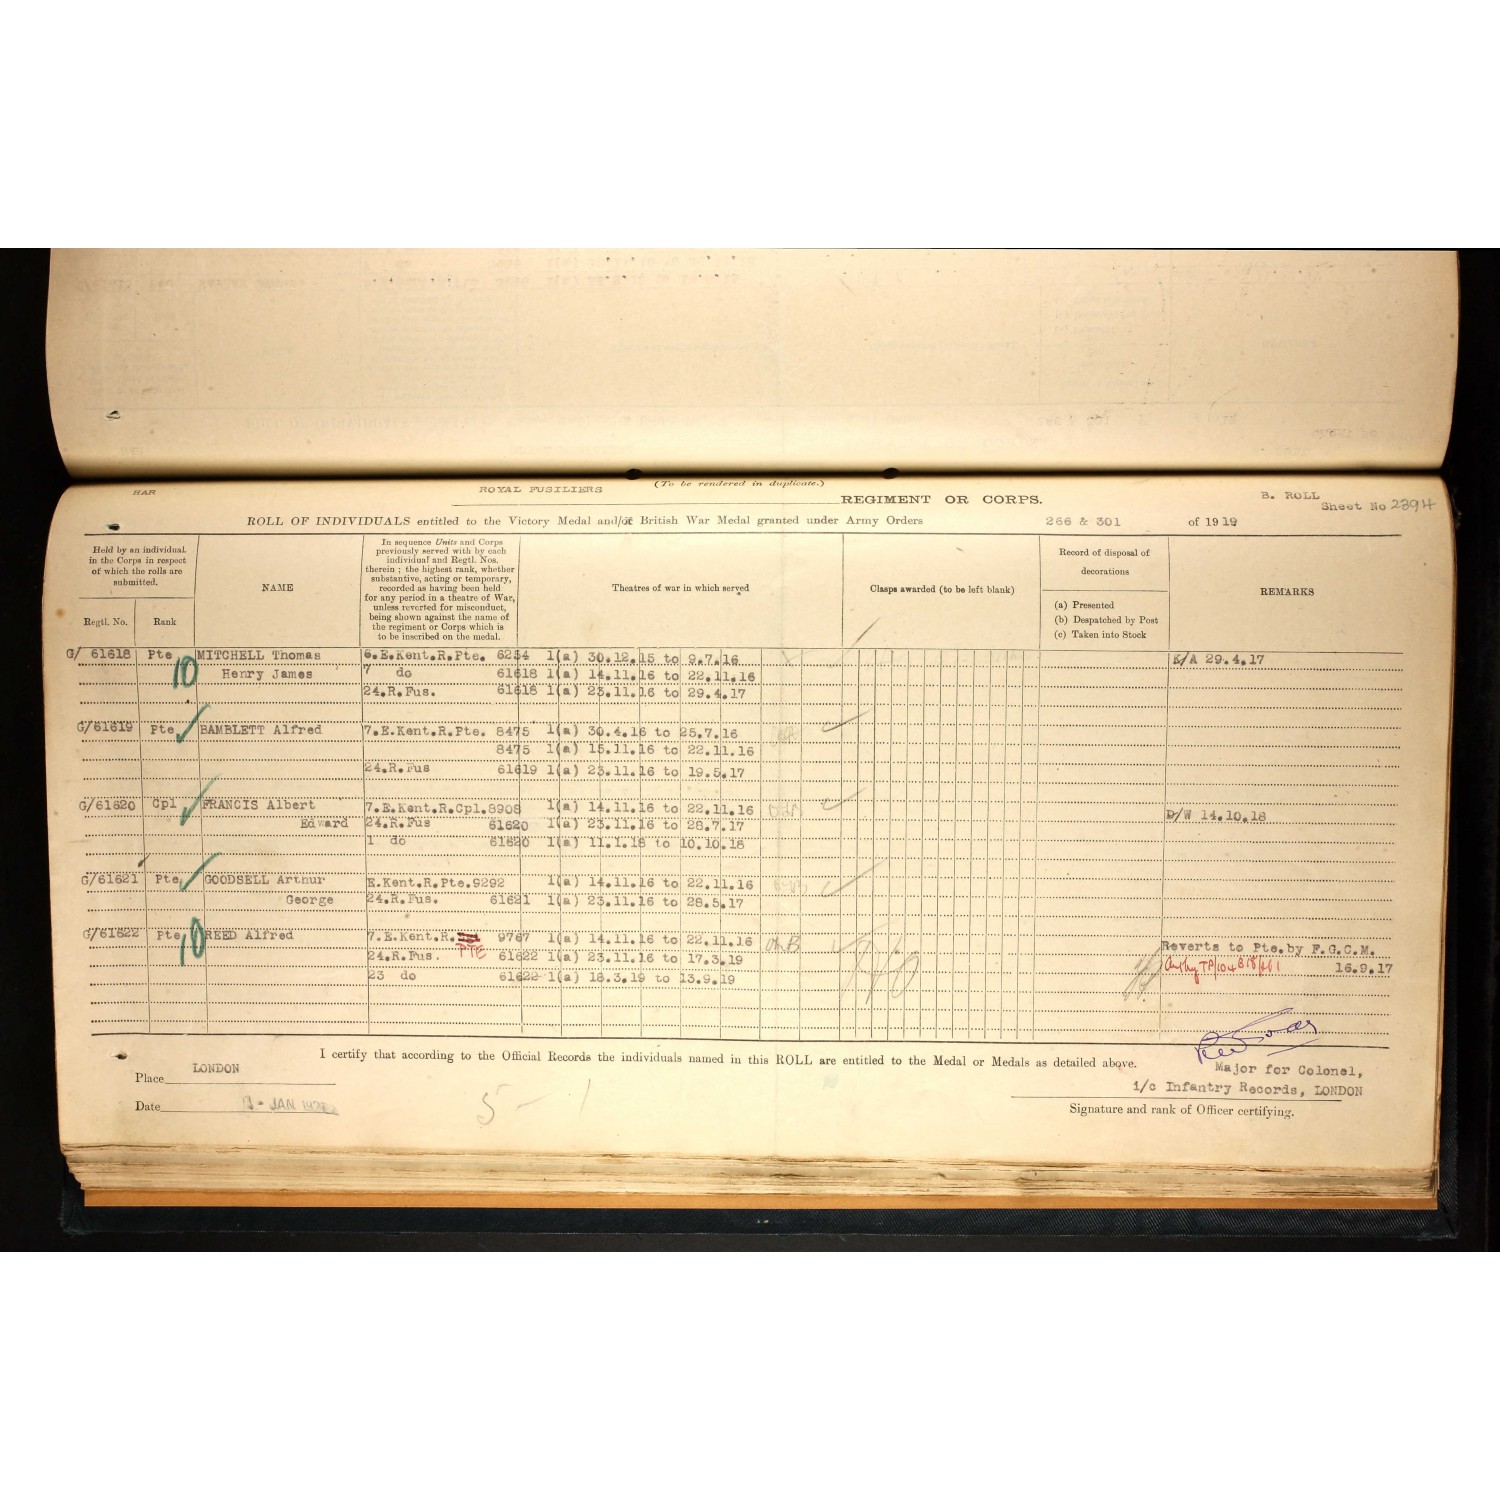 HAR
ROYAL FUSILIERS
(To be rendered in duplicate.)
REGIMENT OR CORPS.
B. ROLL
Sheet No 2394
ROLL OF INDIVIDUALS entitled to the Victory Medal and/or British War Medal granted under Army Orders 266 & 301 of 1919
Held by an individual
in the Corps in respect
of which the rolls are
submitted.
Regtl. No.
Rank
NAME
In sequence Units and Corps
previously served with by each
individual and Regtl. Nos.
therein ; the highest rank, whether
substantive, acting or temporary,
recorded as having been held
for any period in a theatre of War,
unless reverted for misconduct,
being shown against the name of
the regiment or Corps which is
to be inscribed on the medal.
Theatres of war in which served
Clasps awarded (to be left blank)
Record of disposal of
decorations
(a) Presented
(b) Despatched by Post
(c) Taken into Stock
REMARKS
G/ 61618 Pte 10 MITCHELL Thomas 6.E.Kent.R.Pte. 6254 1(a) 30.12.15 to 9.7.16 K/A 29.4.17
Henry James 7 do 61618 1(a) 14.11.16 to 22.11.16
24.R.Fus. 61618 1(a) 23.11.16 to 29.4.17
G/61619 Pte BAMBLETT Alfred 7.E.Kent.R.Pte. 8475 1(a) 30.4.16 to 25.7.16
8475 1(a) 15.11.16 to 22.11.16
24.R.Fus 61619 1(a) 23.11.16 to 19.5.17
G/61620 Cpl FRANCIS Albert 7.E.Kent.R.Cpl.8908 1(a) 14.11.16 to 22.11.16 D/W 14.10.18
Edward 24.R.Fus 61620 1(a) 23.11.16 to 28.7.17
1 do 61620 1(a) 11.1.18 to 10.10.18
G/61621 Pte GOODSELL Arthur E.Kent.R.Pte.9292 1(a) 14.11.16 to 22.11.16
George 24.R.Fus. 61621 1(a) 23.11.16 to 28.5.17
G/61622 Pte 10 REED Alfred 7.E.Kent.R. PTE 9767 1(a) 14.11.16 to 22.11.16 Reverts to Pte.by F.G.C.M.
24.R.Fus. 61622 1(a) 23.11.16 to 17.3.19 16.9.17
23 do 61622 1(a) 18.3.19 to 13.9.19
I certify that according to the Official Records the individuals named in this ROLL are entitled to the Medal or Medals as detailed above.
Place LONDON
Date JAN
5 - 1
Major for Colonel,
i/c Infantry Records, LONDON
Signature and rank of Officer certifying.